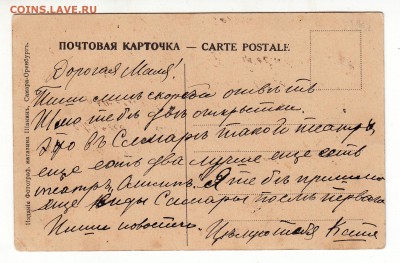 COINS.LAVE.RU
ПОЧТОВАЯ КАРТОЧКА — CARTE POSTALE
Дорогая Маля!
Пиши мнѣ скорѣй отвѣтъ
Шлю тебѣ двѣ открытки.
Это въ Самарѣ такой театръ,
еще есть два лучше еще есть
театръ Олимпъ. Я тебѣ пришлю
еще виды Самары послѣ перваго
Пиши новости. Цѣлую тебя Катя
Изданіе Фотограф. магазина Шпакинъ, Самара-Оренбургъ.